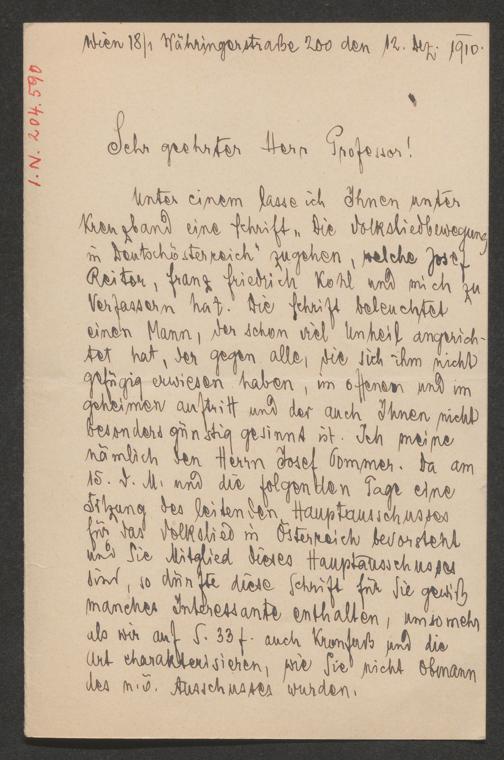 Wien 18/1 Währingerstraße 200 den 12. Dez. 1910.
I.N. 204.590
Sehr geehrter Herr Professor!
Unter einem lasse ich Ihnen unter
Kreuzband eine Schrift „Die Volksliedbewegung
in Deutschösterreich" zugehen, welche Josef
Reiter, Franz Friedrich Kohl und mich zu
Verfassern hat. Die Schrift beleuchtet
einen Mann, der schon viel Unheil angerich-
tet hat, der gegen alle, die sich ihm nicht
gefügig erwiesen haben, im offenen und im
geheimen auftritt und der auch Ihnen nicht
besonders günstig gesinnt ist. Ich meine
nämlich den Herrn Josef Pommer. Da am
15. d. M. und die folgenden Tage eine
Sitzung des leitenden Hauptausschusses
für das Volkslied in Österreich bevorsteht
und Sie Mitglied dieses Hauptausschusses
sind, so dürfte diese Schrift für Sie gewiß
manches Interessante enthalten, umsomehr
als wir auf S. 33 f. auch Kronfuß und die
Art charakterisieren, wie Sie nicht Obmann
des n.ö. Ausschusses wurden.